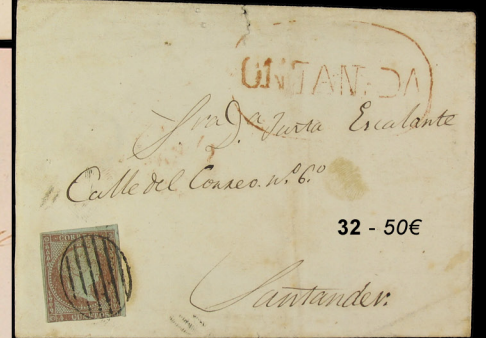 ONTANEDA
Sra D.ª Justa Escalante
Calle del Correo. n.º 6.º
32 - 50€
Santander.
CORREOS
CUARTOS